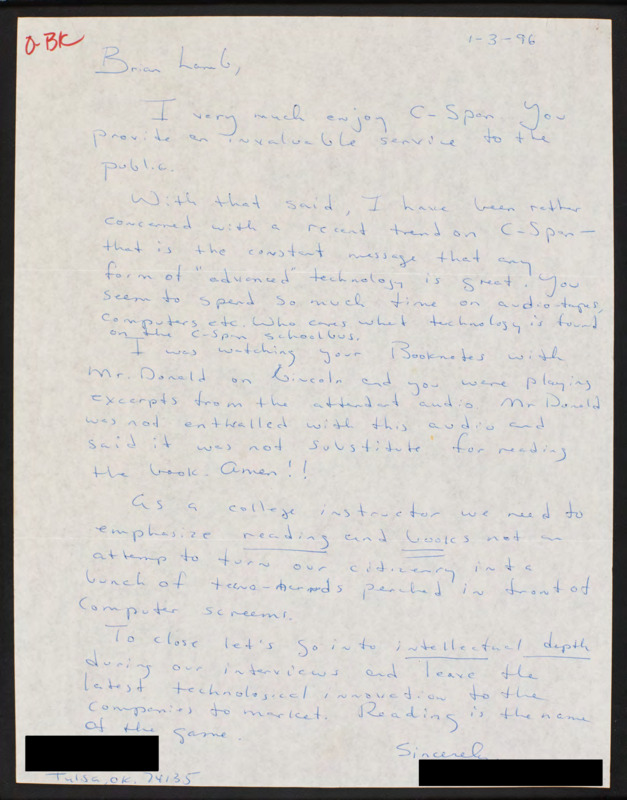 O-BK
1-3-96
Brian Lamb,
I very much enjoy C-Span You
provide an invaluable service to the
public.
With that said, I have been rather
concerned with a recent trend on C-Span—
that is the constant message that any
form of "advanced" technology is great. You
seem to spend so much time on audio-tapes,
computers etc. Who cares what technology is found
on the C-Span schoolbus.
I was watching your Booknotes with
Mr. Donald on Lincoln and you were playing
excerpts from the attendant audio. Mr Donald
was not enthralled with this audio and
said it was not substitute for reading
the book. Amen!!
As a college instructor we need to
emphasize reading and books not an
attemp to turn our citizenry into a
bunch of perched in front of
computer screens.
To close let's go into intellectual depth
during our interviews and leave the
latest technological innovation to the
companies to market. Reading is the name
of the game.
Sincerely,
Tulsa, OK. 74135